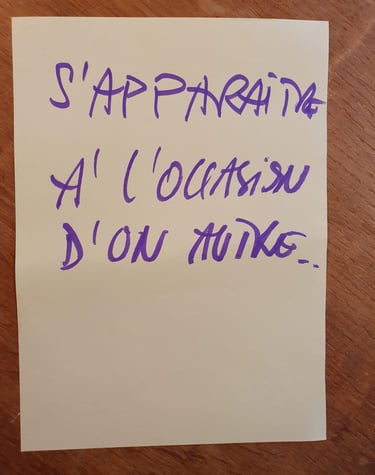 S'APPARAÎTRE
A' L'OCCASION
D'ON AUTRE..